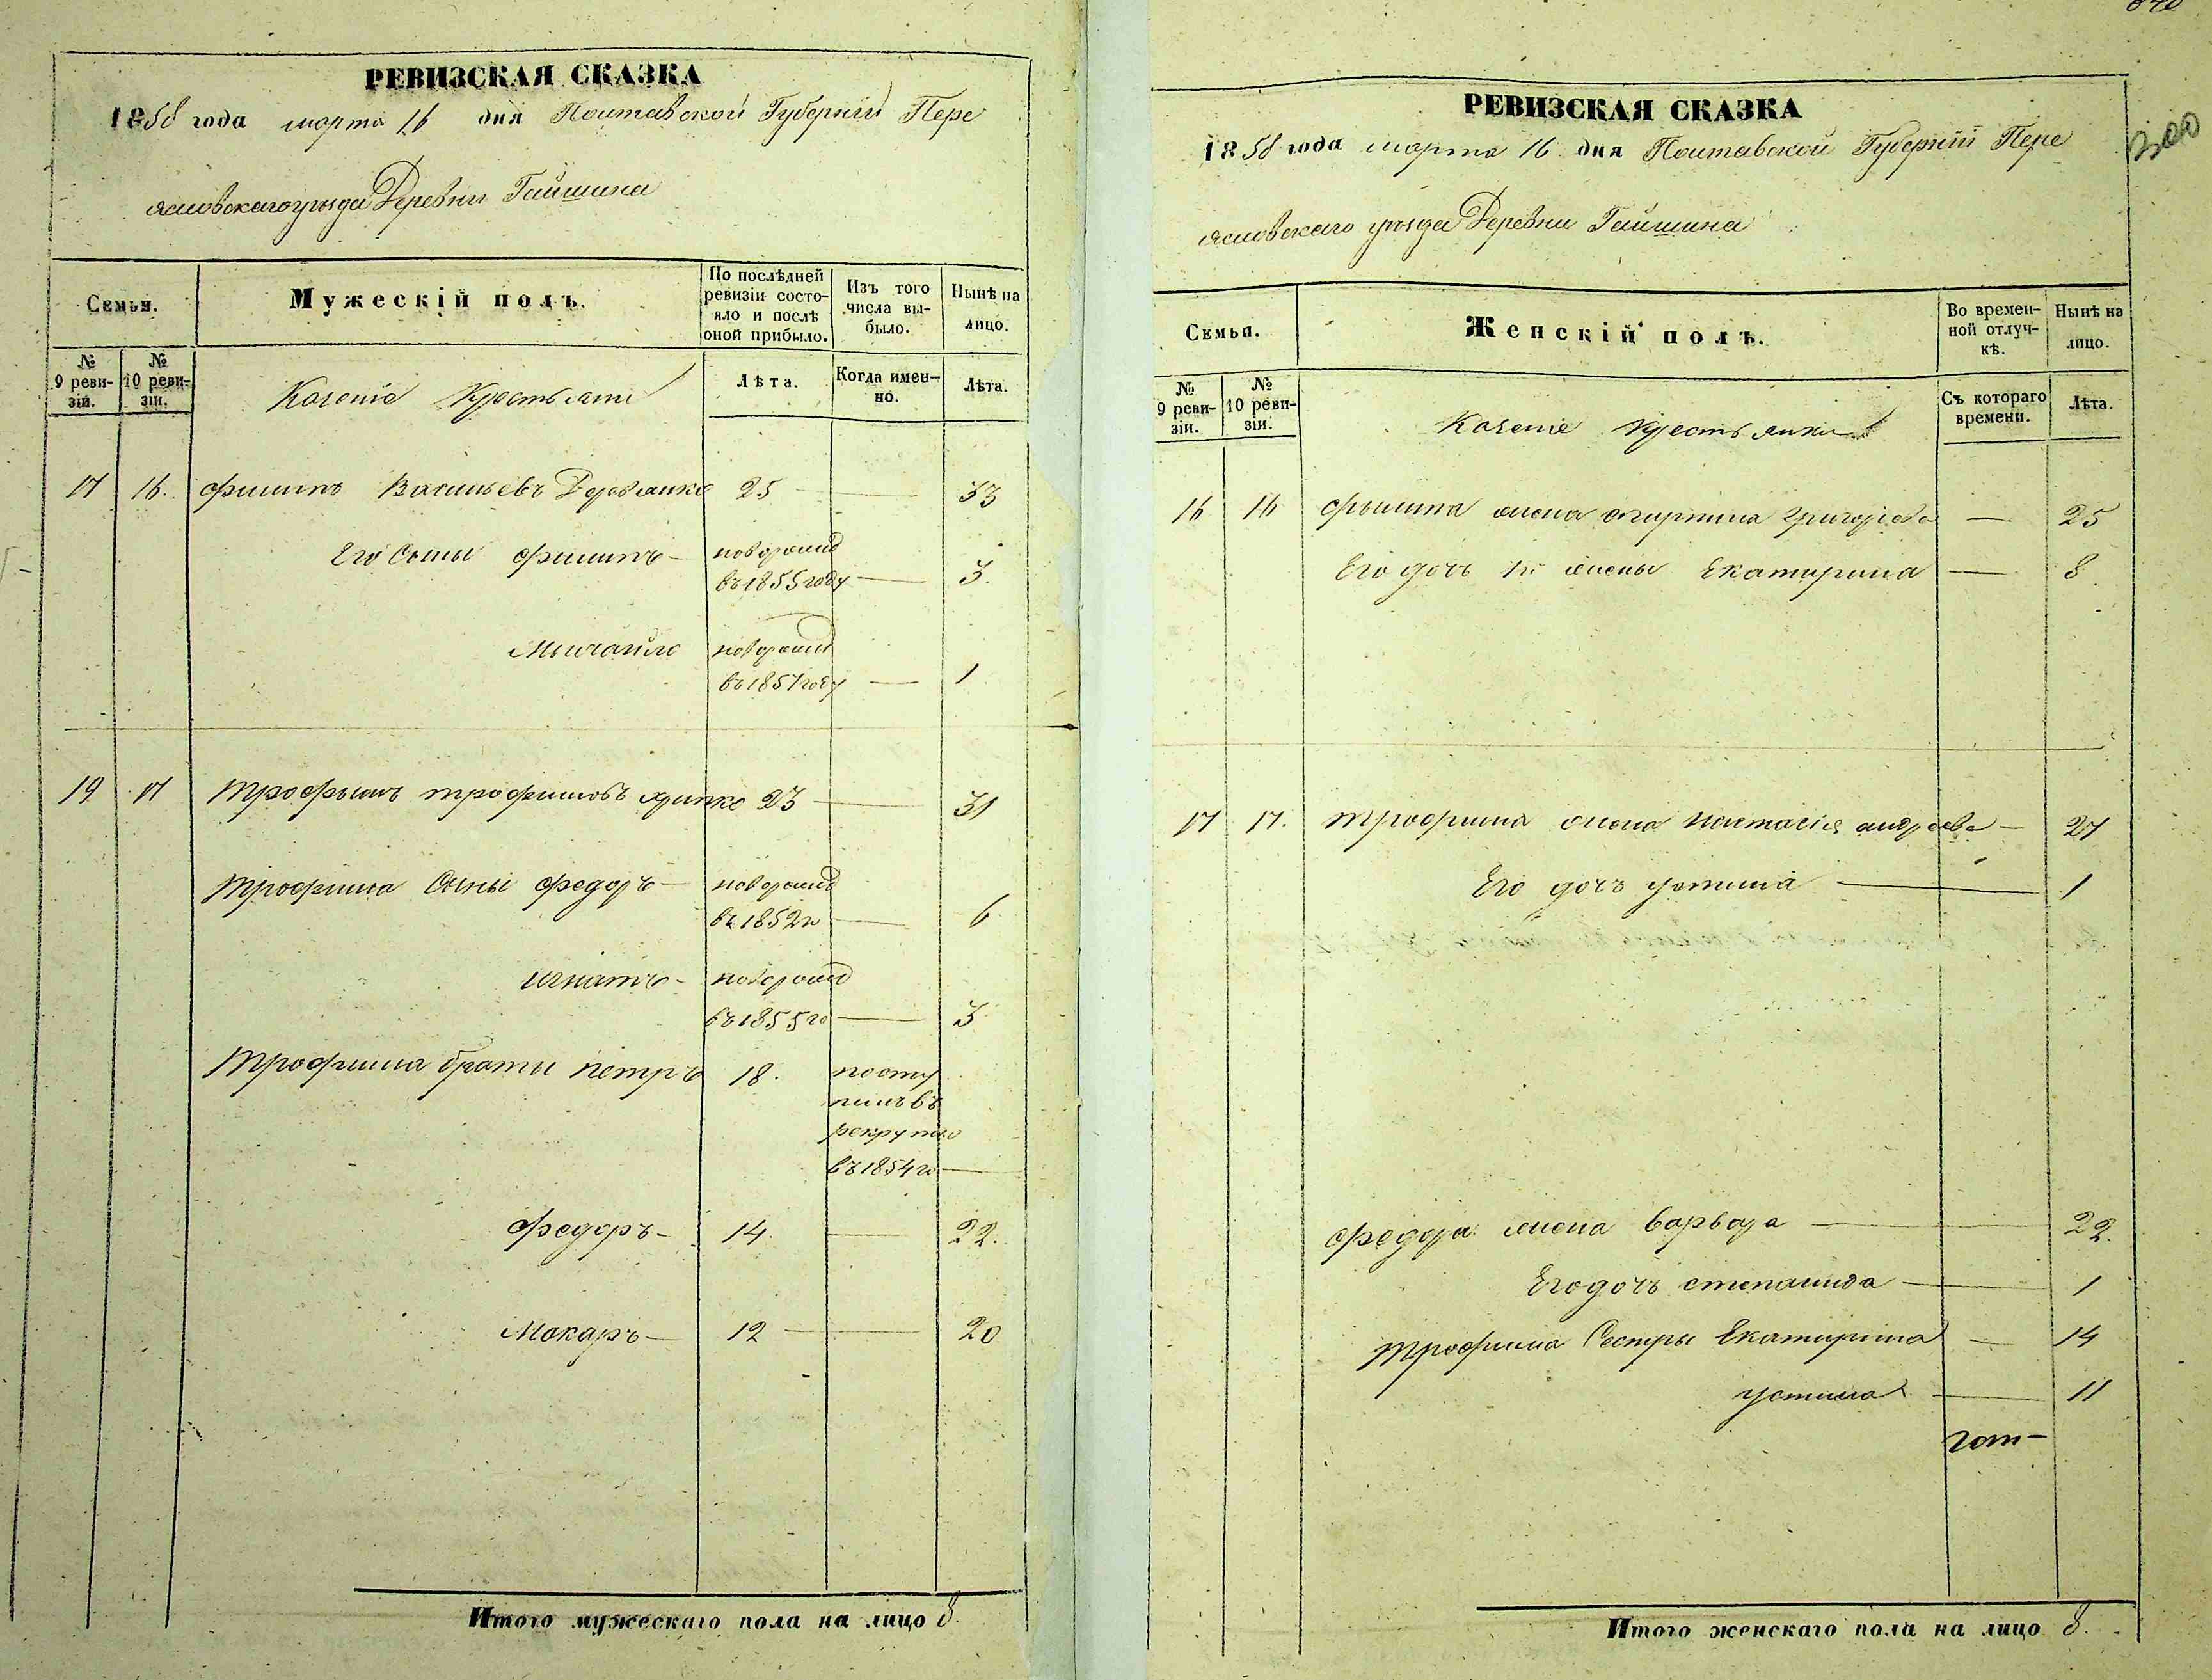 РЕВИЗСКАЯ СКАЗКА
1858 года марта 16 дня Полтавской Губерніи Пере
яславскаго уезда Деревни Гайшина
Семьи.
Мужескій полъ.
По послѣдней ревизіи состояло и послѣ оной прибыло.
Изъ того числа выбыло.
Нынѣ на лицо.
№ 9 ревизіи.
№ 10 ревизіи.
Казеніе Крестьяни
Лѣта.
Когда именно.
Лѣта.
17 16. Филипъ Васильевъ Деревянко 25 — 33
Его Сыны Филипъ — новорожд
въ 1855 году — 3.
Михайло новорожд
въ 1857 году — 1
19 17 Трофымъ Трофимовъ 23 — 31
Трофима Сыны Федоръ — новорожд
въ 1852 го — 6
Игнатъ — новорожд
въ 1855 го — 3
Трофима браты Петръ 18. посту
пилъ въ
рекруты
въ 1854 го —
Федоръ — 14. — 22.
Макаръ — 12 — 20
Итого мужескаго пола на лицо 8.
РЕВИЗСКАЯ СКАЗКА
1858 года марта 16 дня Полтавской Губерніи Пере
яславскаго уезда Деревни Гайшина
300
Семьи.
Женскій полъ.
Во временной отлучкѣ.
Нынѣ на лицо.
№ 9 ревизіи.
№ 10 ревизіи.
Казеніе Крестьянки
Съ котораго времени.
Лѣта.
16 16 Филипа жена Григорьева — 25
Его дочь 1й жены Екатирина — 8
17 17. Трофима жена Настасія андреева — 27
Его дочь устина — 1
Федора жена Варвара — 22.
Его дочь степанида — 1
Трофима Сестры Екатирина — 14
устина — 11
Итого женскаго пола на лицо 8.